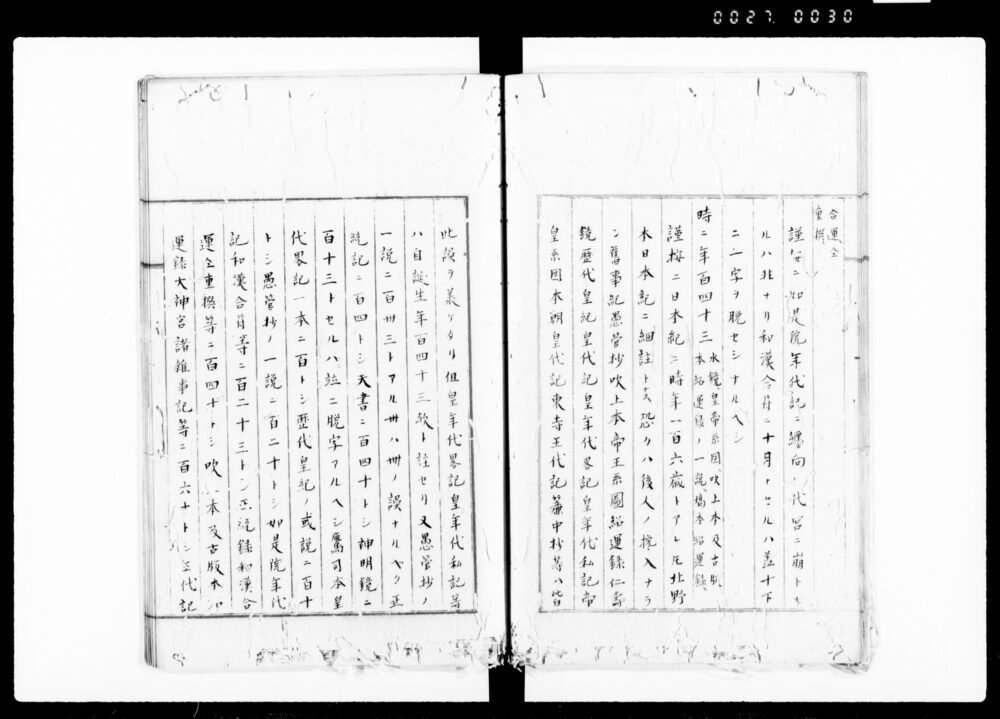 0027. 0030
合運仝
重撰
謹按ニ如是院年代記ニ纏向ノ代宮ニ崩トセ
ルハ非ナリ和漢合符ニ十月トセルハ蓋十下
ニ一字ヲ脱セシナルヘシ
時ニ年百四十三 水鏡皇帝系図吹上本及古版
本紹運録ノ一説橋本紹運録
謹按ニ日本紀ニ時年一百六歳トアレ𪜈北野
本日本紀ニ細註トス恐クハ後人ノ攙入ナラ
ン舊事紀愚管抄吹上本帝王系圖紹運録仁壽
鏡歴代皇紀皇代記皇年代畧記皇年代私記帝
皇系図本朝皇代記東寺王代記簾中抄等ハ皆
此誤ヲ義ケタリ但皇年代畧記皇年代私記等
ハ自誕生年百四十三欤ト註セリ又愚管抄ノ
一説ニ百卅三トアル卅ハ卌ノ誤ナルヘク正
統記ニ百四トシ天書ニ百四十トシ神明鏡ニ
百十三トセルハ並ニ脱字アルヘシ鷹司本皇
代畧記一本ニ百トシ歴代皇紀ノ或説ニ百十
トシ愚管抄ノ一説ニ百二十トシ如是院年代
記和漢合符等ニ百二十三トシ正統録和漢合
運仝重撰等ニ百四十トシ吹上本及古版本紹
運録大神宮諸雑事記等ニ百六十トシ王代記